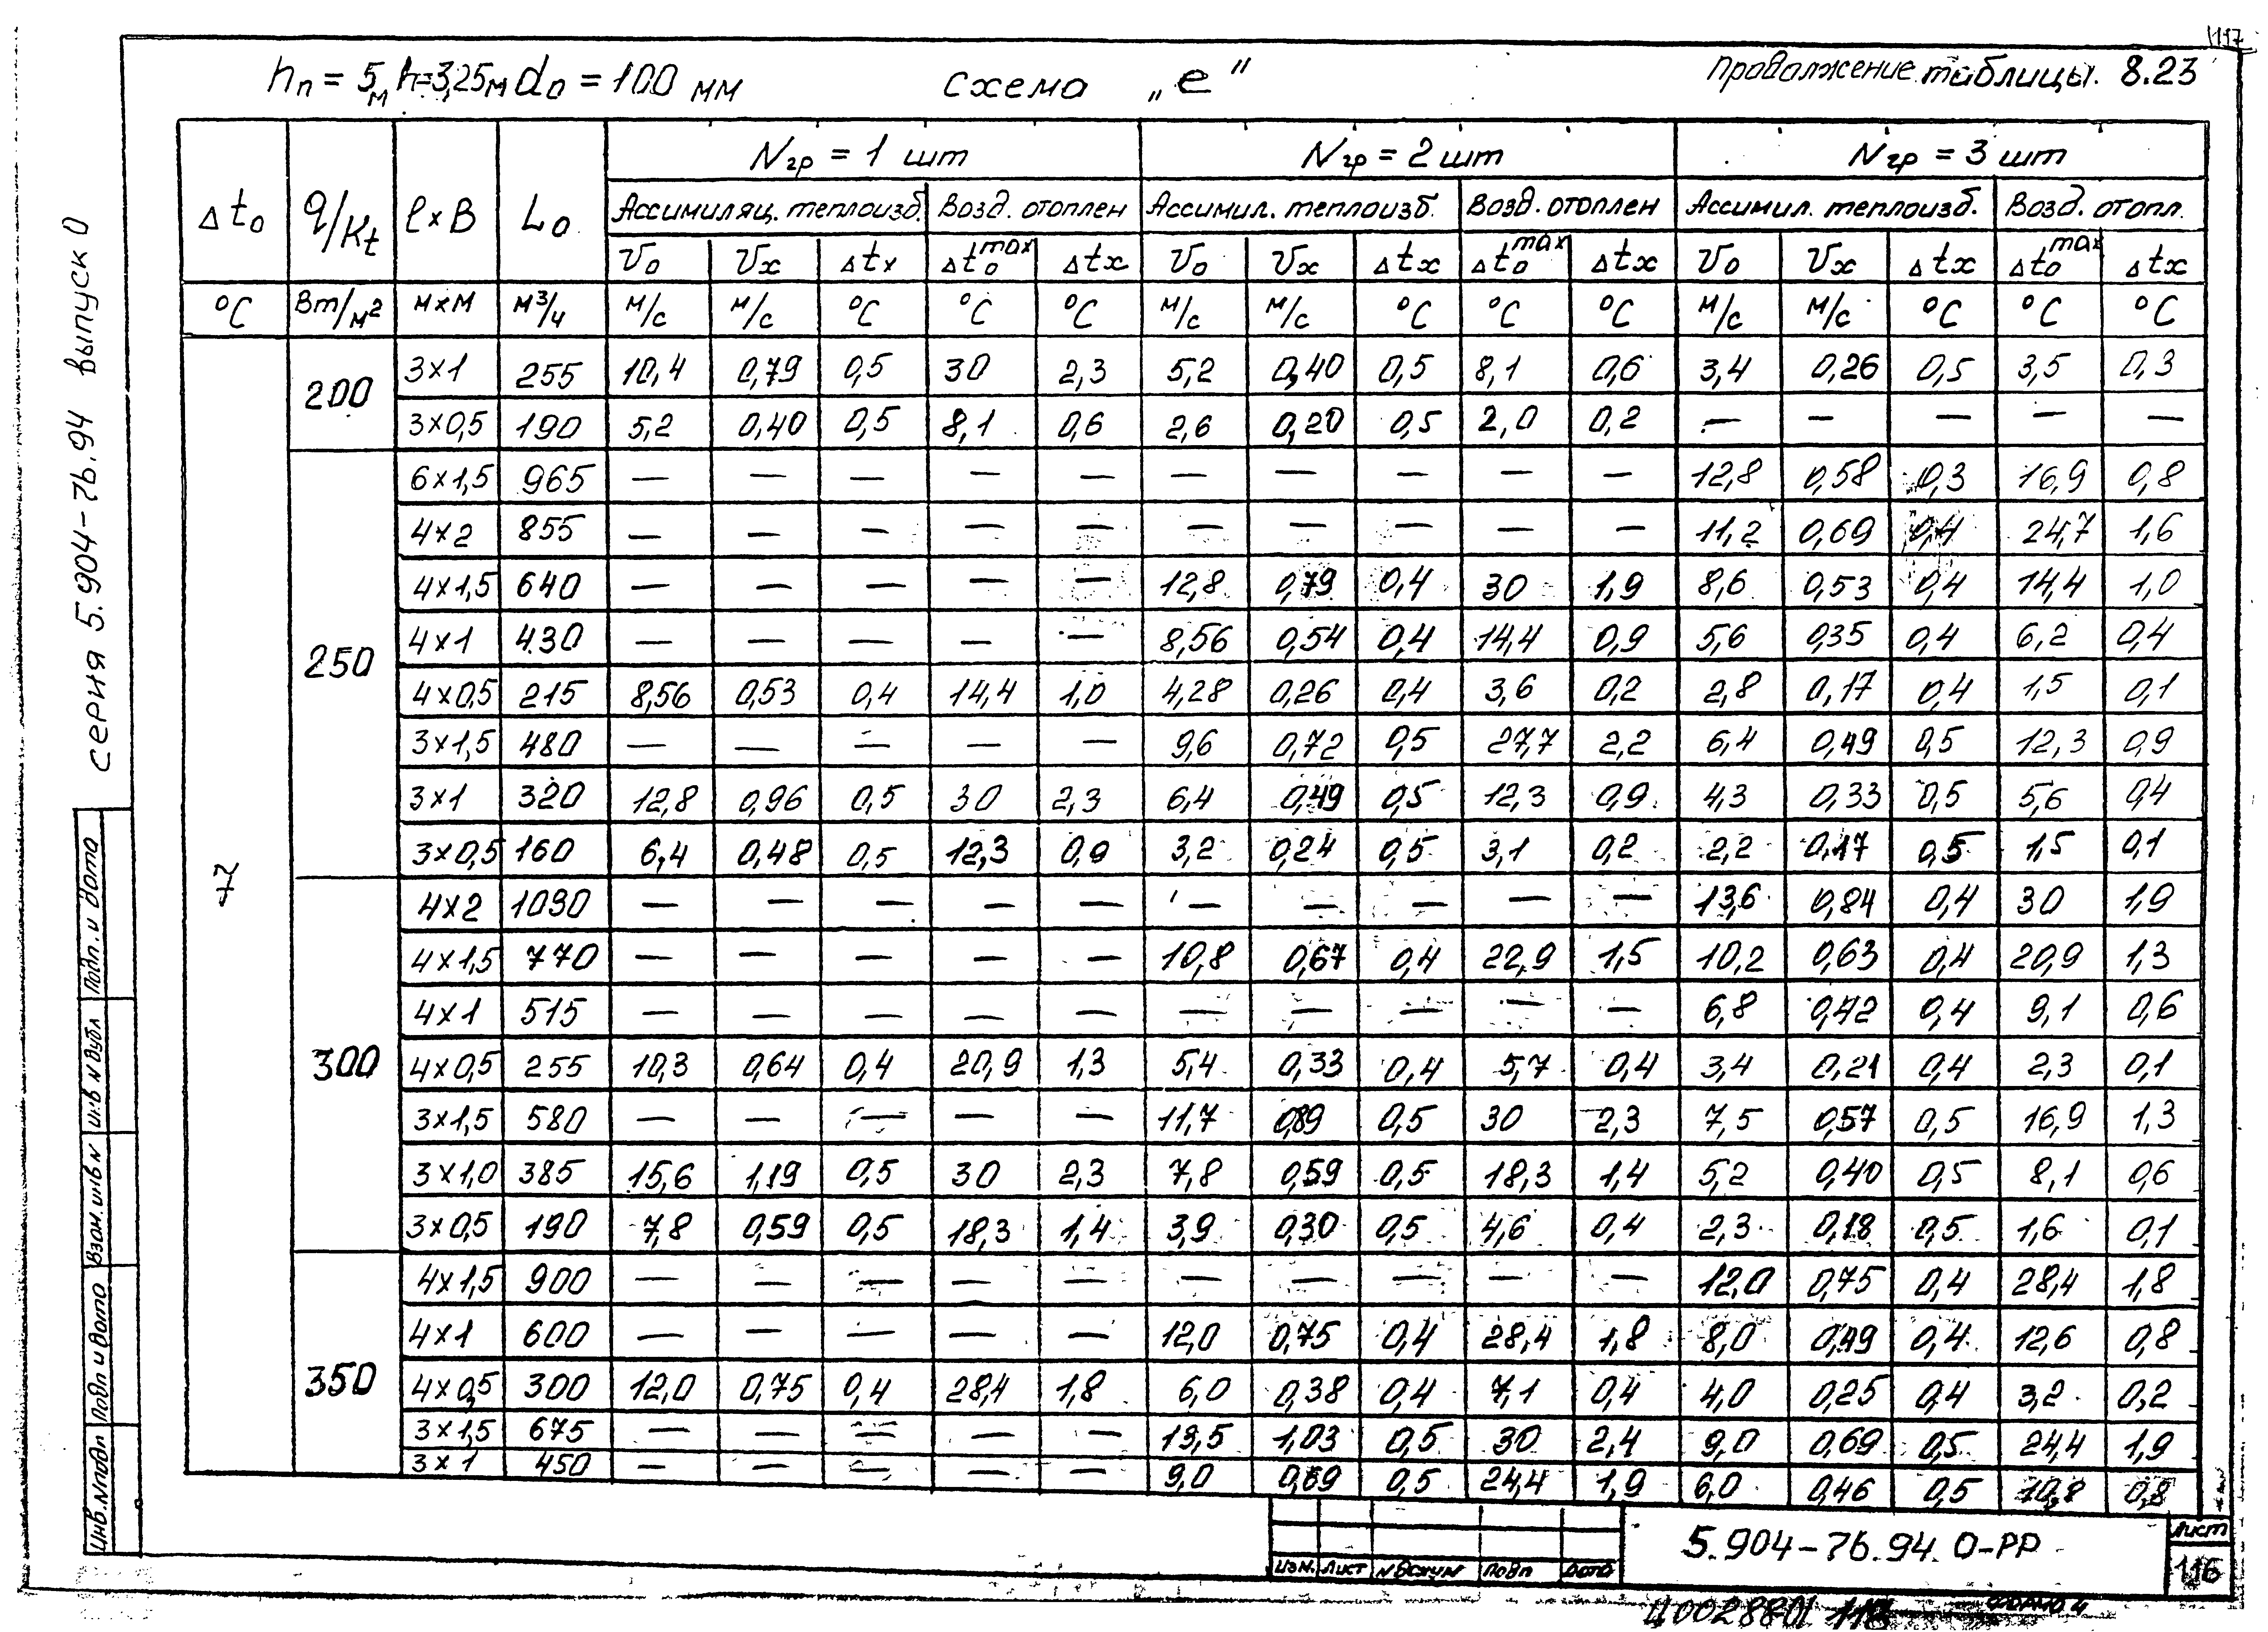 117
hп = 5м h=3,25м dо = 100 мм схема „е" Продолжение таблицы 8.23
Δtо q/Kt ℓ×B Lо Nгр = 1 шт Nгр = 2 шт Nгр = 3 шт
Ассимиляц. теплоизб. Возд. отоплен Ассимил. теплоизб. Возд. отоплен Ассимил. теплоизб. Возд. отопл.
Vо Vх Δtх Δtо max Δtх Vо Vх Δtх Δtо max Δtх Vо Vх Δtх Δtо max Δtх
°С Вт/м² м×м м³/ч м/с м/с °С °С °С м/с м/с °С °С °С м/с м/с °С °С °С
7
200
3×1 255 10,4 0,79 0,5 30 2,3 5,2 0,40 0,5 8,1 0,6 3,4 0,26 0,5 3,5 0,3
3×0,5 190 5,2 0,40 0,5 8,1 0,6 2,6 0,20 0,5 2,0 0,2 — — — — —
250
6×1,5 965 — — — — — — — — — — 12,8 0,58 0,3 16,9 0,8
4×2 855 — — — — — — — — — — 11,2 0,69 0,4 24,7 1,6
4×1,5 640 — — — — — 12,8 0,79 0,4 30 1,9 8,6 0,53 0,4 14,4 1,0
4×1 430 — — — — — 8,56 0,54 0,4 14,4 0,9 5,6 0,35 0,4 6,2 0,4
4×0,5 215 8,56 0,53 0,4 14,4 1,0 4,28 0,26 0,4 3,6 0,2 2,8 0,17 0,4 1,5 0,1
3×1,5 480 — — — — — 9,6 0,72 0,5 27,7 2,2 6,4 0,49 0,5 12,3 0,9
3×1 320 12,8 0,96 0,5 30 2,3 6,4 0,49 0,5 12,3 0,9 4,3 0,33 0,5 5,6 0,4
3×0,5 160 6,4 0,48 0,5 12,3 0,9 3,2 0,24 0,5 3,1 0,2 2,2 0,17 0,5 1,5 0,1
300
4×2 1030 — — — — — — — — — — 13,6 0,84 0,4 30 1,9
4×1,5 770 — — — — — 10,8 0,67 0,4 22,9 1,5 10,2 0,63 0,4 20,9 1,3
4×1 515 — — — — — — — — — — 6,8 0,42 0,4 9,1 0,6
4×0,5 255 10,3 0,64 0,4 20,9 1,3 5,4 0,33 0,4 5,7 0,4 3,4 0,21 0,4 2,3 0,1
3×1,5 580 — — — — — 11,7 0,89 0,5 30 2,3 7,5 0,57 0,5 16,9 1,3
3×1,0 385 15,6 1,19 0,5 30 2,3 7,8 0,59 0,5 18,3 1,4 5,2 0,40 0,5 8,1 0,6
3×0,5 190 7,8 0,59 0,5 18,3 1,4 3,9 0,30 0,5 4,6 0,4 2,3 0,18 0,5 1,6 0,1
350
4×1,5 900 — — — — — — — — — — 12,0 0,75 0,4 28,4 1,8
4×1 600 — — — — — 12,0 0,75 0,4 28,4 1,8 8,0 0,49 0,4 12,6 0,8
4×0,5 300 12,0 0,75 0,4 28,4 1,8 6,0 0,38 0,4 7,1 0,4 4,0 0,25 0,4 3,2 0,2
3×1,5 675 — — — — — 13,5 1,03 0,5 30 2,4 9,0 0,69 0,5 24,4 1,9
3×1 450 — — — — — 9,0 0,69 0,5 24,4 1,9 6,0 0,46 0,5 10,8 0,8
серия 5.904-76.94 выпуск 0
Подп. и дата
Инв N дубл
Взам. инв N
Подп и дата
Инв. N подп
Изм. Лист N докум Подп Дата
5.904-76.94. 0-РР
Лист
116
Ц00288-01 118
Формат 4